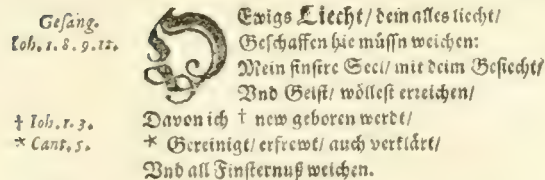 Geſäng.
Ioh. 1. 8. 9. 12.
O Ewigs Liecht/ dem alles liecht/
Geſchaffen hie müſſn weichen:
Mein finſtre Seel/ mit deim Geſiecht/
Vnd Geiſt/ wölleſt erreichen/
† Ioh. 1. 3.
Davon ich † new geboren werdt/
* Cant. 5.
* Gereinigt/ erfrewt/ auch verklärt/
Vnd all Finſternuß weichen.